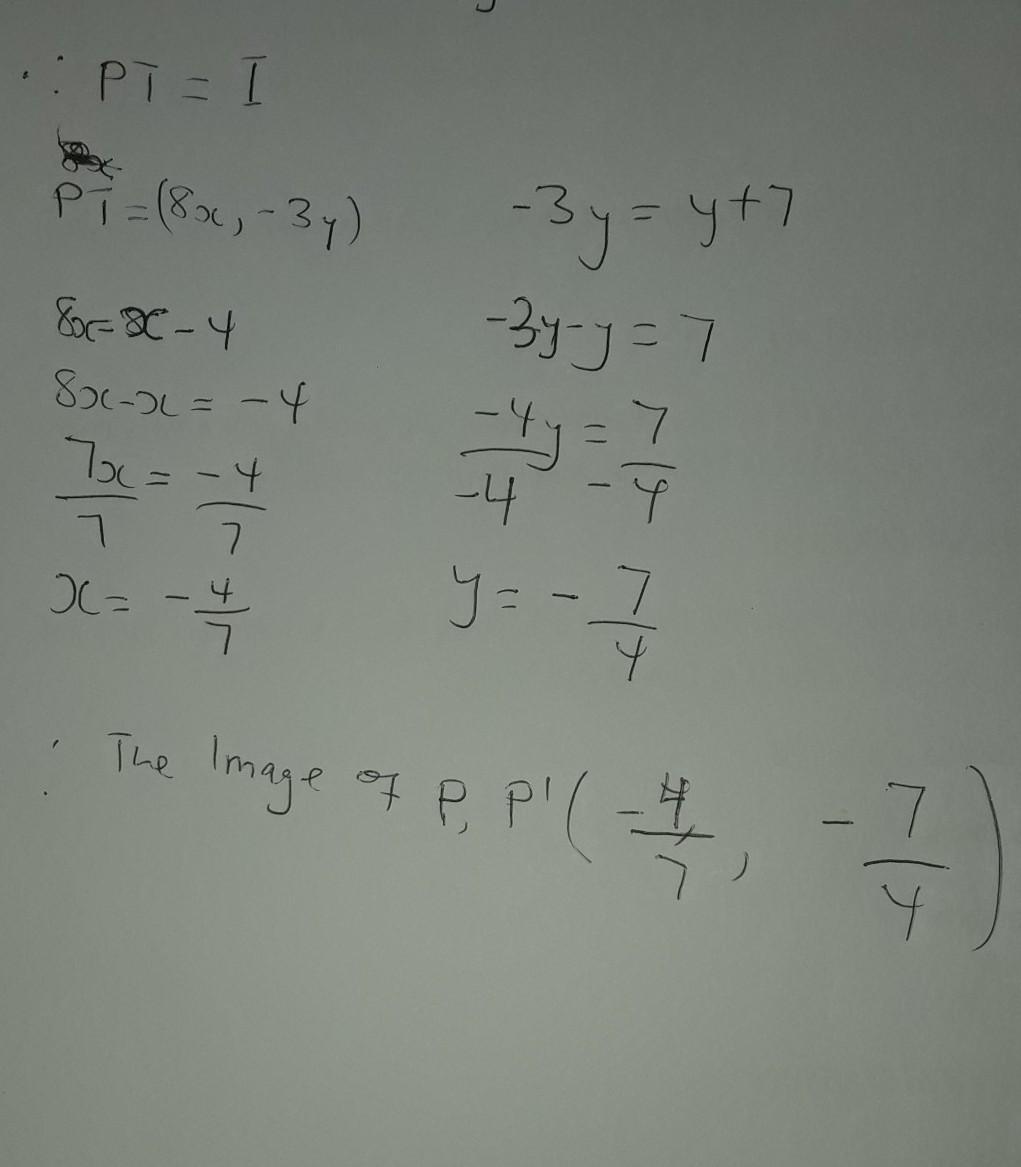 ∴ PT = I
PT = (8x, -3y)
8x = x - 4
8x - x = -4
7x/7 = -4/7
x = -4/7
-3y = y + 7
-3y - y = 7
-4y/-4 = 7/-4
y = -7/4
∴ The Image of P, P'(-4/7, -7/4)